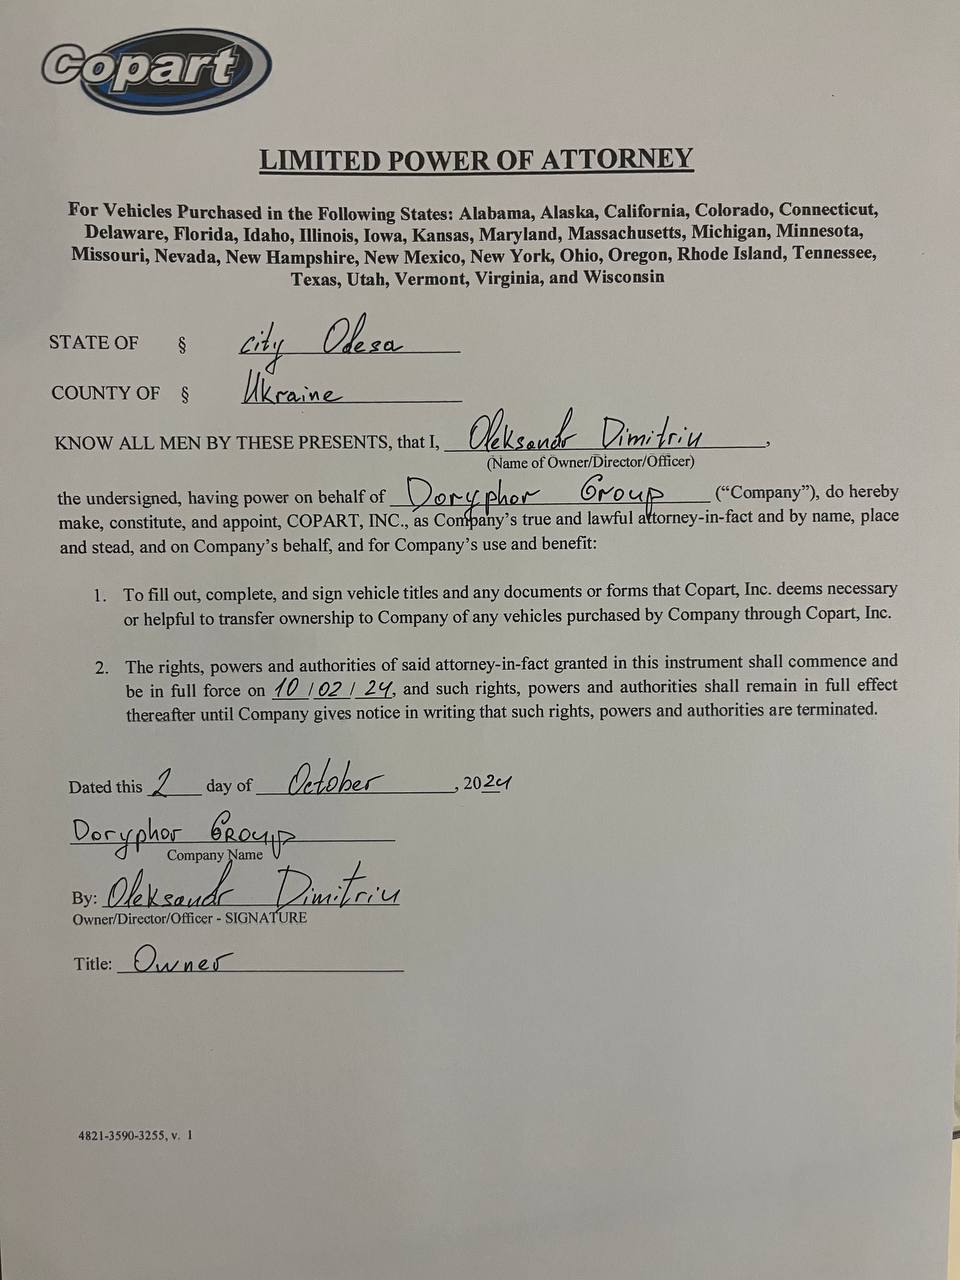 Copart
LIMITED POWER OF ATTORNEY
For Vehicles Purchased in the Following States: Alabama, Alaska, California, Colorado, Connecticut,
Delaware, Florida, Idaho, Illinois, Iowa, Kansas, Maryland, Massachusetts, Michigan, Minnesota,
Missouri, Nevada, New Hampshire, New Mexico, New York, Ohio, Oregon, Rhode Island, Tennessee,
Texas, Utah, Vermont, Virginia, and Wisconsin
STATE OF § city Odesa
COUNTY OF § Ukraine
KNOW ALL MEN BY THESE PRESENTS, that I, Oleksandr Dimitriu,
(Name of Owner/Director/Officer)
the undersigned, having power on behalf of Doryphor Group (“Company”), do hereby
make, constitute, and appoint, COPART, INC., as Company’s true and lawful attorney-in-fact and by name, place
and stead, and on Company’s behalf, and for Company’s use and benefit:
1. To fill out, complete, and sign vehicle titles and any documents or forms that Copart, Inc. deems necessary
or helpful to transfer ownership to Company of any vehicles purchased by Company through Copart, Inc.
2. The rights, powers and authorities of said attorney-in-fact granted in this instrument shall commence and
be in full force on 10/02/24, and such rights, powers and authorities shall remain in full effect
thereafter until Company gives notice in writing that such rights, powers and authorities are terminated.
Dated this 2 day of October, 2024
Doryphor Group
Company Name
By: Oleksandr Dimitriu
Owner/Director/Officer - SIGNATURE
Title: Owner
4821-3590-3255, v. 1